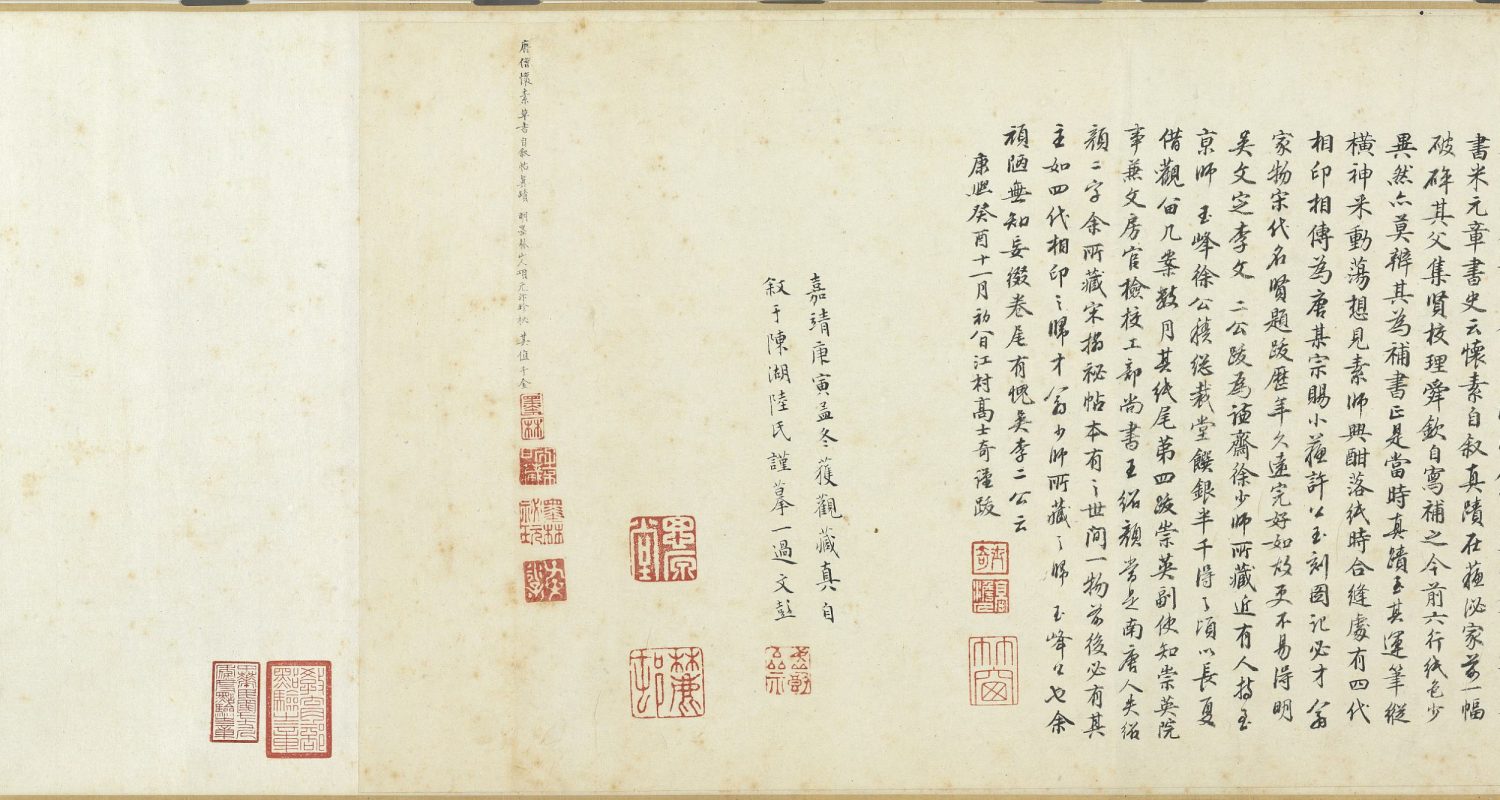 書米元章書史云懷素自叙真蹟在蘇泌家前一幅
破碎其父集賢校理舜欽自寫補之今前六行紙色少
異然亦莫辨其為補書正是當時真蹟至其運筆縱
橫神采動蕩想見素師興酣落紙時合縫處有四代
相印相傳為唐某宗賜小蘇許公玉刻圖記必才翁
家物宋代名賢題跋歷年久遠完好如故更不易得明
吳文定李文 二公跋為謙齋徐少師所藏近有人持至
京師 玉峰徐公積總裁堂饌銀半千得之頃以長夏
借觀留几案數月其紙尾第四跋崇英副使知崇英院
事兼文房官檢校工部尚書王紹顏當是南唐人失紹
顏二字余所藏宋搨祕帖本有之世間一物前後必有其
主如四代相印之歸才翁少師所藏之歸 玉峰公也余
頑陋無知妄綴卷尾有愧吳李二公云
康熙癸酉十一月初八日江村高士奇謹跋
士奇
竹窗
嘉靖庚寅孟冬獲觀藏真自
叙于陳湖陸氏謹摹一過文彭
唐僧懷素草書自叙帖真蹟 明墨林山人項元汴珍秘 其值千金
墨林
墨林祕玩
教育部點驗之章